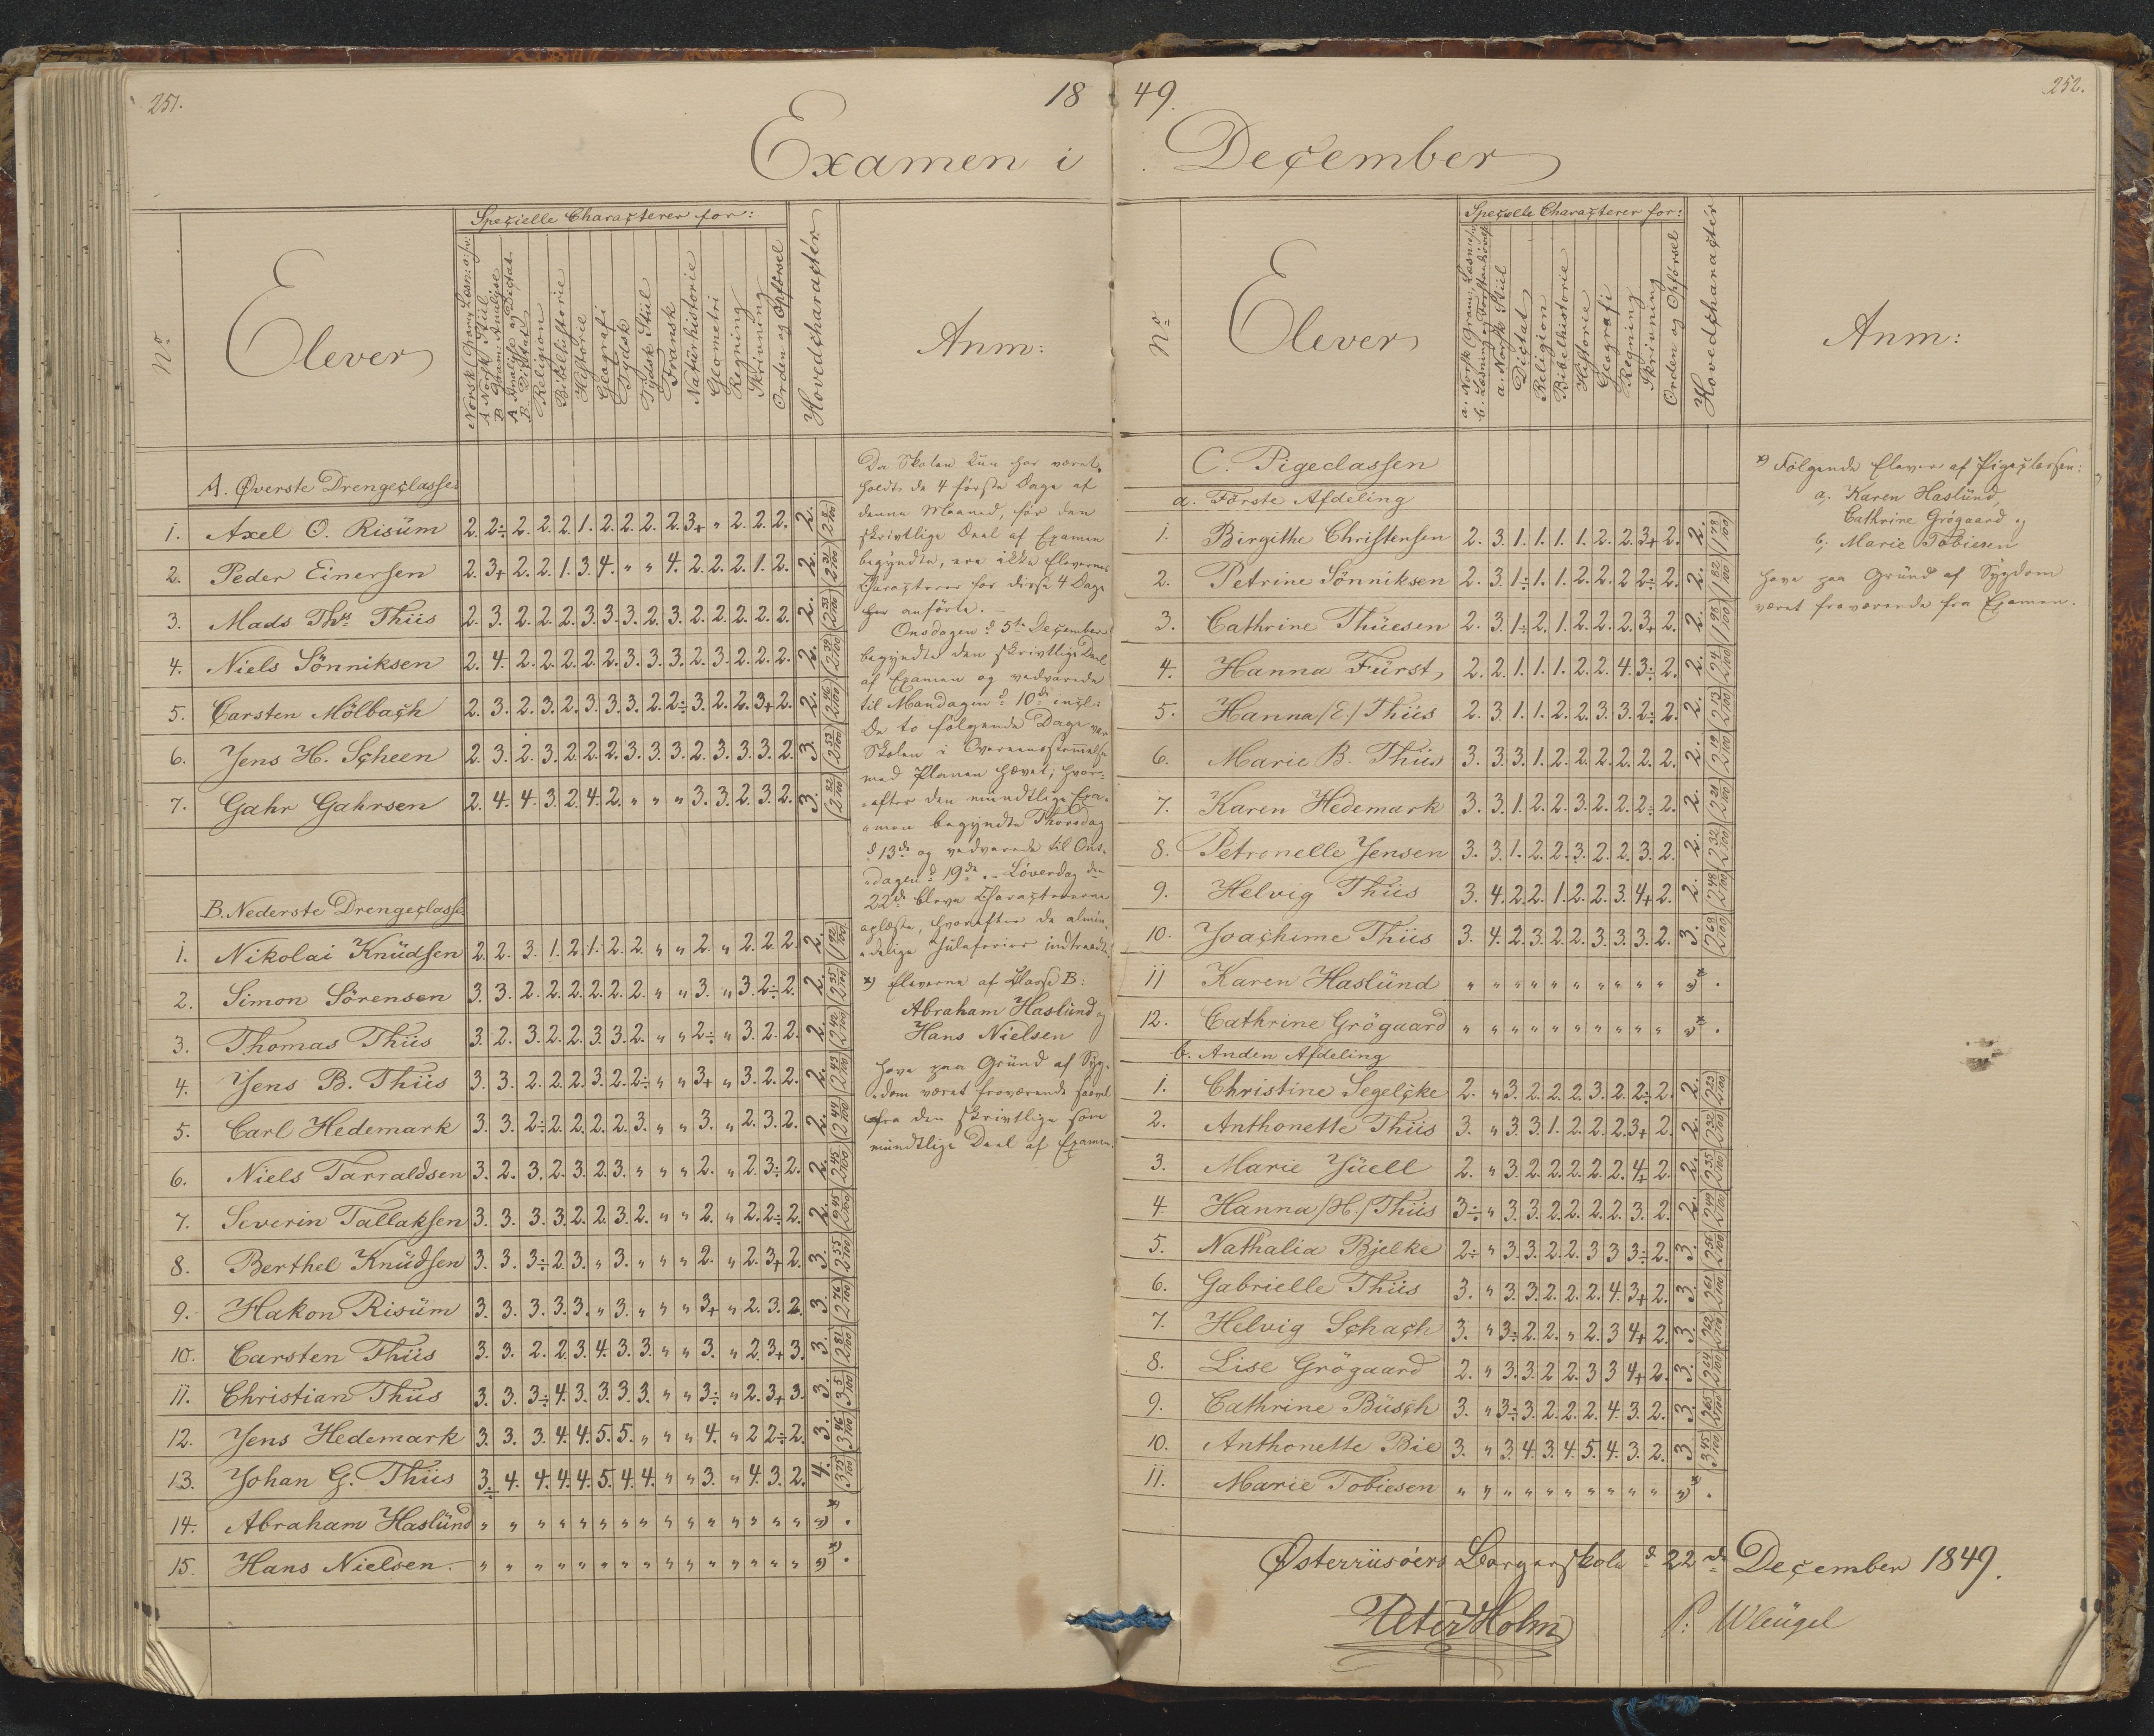 251.
18
Examen i
Specielle Characterer for:
No
Elever
Religion
Bibelhistorie
Historie
Geografi
Tydsk
Tydsk Stiil
Fransk
Naturhistorie
Geometri
Regning
Skrivning
Orden og Opförsel
Hovedcharactér
Anm:
A. Øverste Drengeclasse
1. Axel O. Risüm 2. 2÷ 2. 2. 2. 1. 2. 2. 2. 2. 3+ „ 2. 2. 2. 2.
2. Peder Einersen 2. 3+ 2. 2. 1. 3. 4. „ „ 4. 2. 2. 2. 1. 2. 2. (2 31/100)
3. Mads Ths Thiis 2. 3. 2. 2. 2. 3. 3. 3. 2. 3. 2. 2. 2. 2. 2. 2. (2 33/100)
4. Niels Sönniksen 2. 4. 2. 2. 2. 2. 2. 3. 3. 3. 2. 3. 2. 2. 2. 2. (2 39/100)
5. Carsten Mölbach 2. 3. 2. 3. 2. 3. 3. 3. 2. 2÷ 3. 2. 2. 3+ 2. 2. (2 46/100)
6. Jens H. Scheen 2. 3. 2. 3. 2. 2. 2. 3. 3. 3. 2. 3. 3. 3. 2. 3. (2 53/100)
7. Gahr Gahrsen 2. 4. 4. 3. 2. 4. 2. „ „ „ 3. 3. 2. 3. 2. 3. (2 82/100)
B. Nederste Drengeclasse
1. Nikolai Knüdsen 2. 2. 3. 1. 2. 1. 2. 2. „ „ 2. „ 2. 2. 2. 2. (1 92/100)
2. Simon Sörensen 3. 3. 2. 2. 2. 2. 2. 2. „ „ 3. „ 3. 2÷ 2. 2. (2 35/100)
3. Thomas Thiis 3. 2. 3. 2. 2. 3. 3. 2. „ „ 2÷ „ 3. 2. 2. 2. (2 42/100)
4. Jens B. Thiis 3. 3. 2. 2. 2. 3. 2. 2÷ „ „ 3+ „ 3. 2. 2. 2. (2 43/100)
5. Carl Hedemark 3. 3. 2÷ 2. 2. 2. 2. 3. „ „ 3. „ 2. 3. 2. 2. (2 44/100)
6. Niels Tarraldsen 3. 2. 3. 2. 3. 2. 3. „ „ „ 2. „ 2. 3÷ 2. 2. (2 45/100)
7. Severin Tallaksen 3. 3. 3. 3. 2. 2. 3. 2. „ „ 2. „ 2. 2÷ 2. 2. (2 45/100)
8. Berthel Knüdsen 3. 3. 3÷ 2. 3. „ 3. „ „ „ 2. „ 2. 3+ 2. 3. (2 55/100)
9. Hakon Risüm 3. 3. 3. 3. 3. „ 3. „ „ „ 3+ „ 2. 3. 2. 3. (2 76/100)
10. Carsten Thiis 3. 3. 2. 2. 3. 4. 3. 3. „ „ 3. „ 2. 3+ 3. 3. (2 81/100)
11. Christian Thiis 3. 3. 3÷ 4. 3. 3. 3. 3. „ „ 3÷ „ 2. 3+ 3. 3. (3 5/100)
12. Jens Hedemark 3. 3. 3. 4. 4. 5. 5. „ „ „ 4. „ 2 2÷ 2. 3. (3 46/100)
13. Johan G. Thiis 3÷ 4. 4. 4. 4. 5. 4. 4. „ „ 3. „ 4. 3. 2. 4. (3 75/100)
14. Abraham Haslünd „ „ „ „ „ „ „ „ „ „ „ „ „ „ „ „ *) .
15. Hans Nielsen. „ „ „ „ „ „ „ „ „ „ „ „ „ „ „ „ *) .
Da Skolen kün har været
holdt de 4 förste Dage af
denne Maaned, för den
skrivtlige Deel af Examen
begyndte, ere ikke Elevernes
Characterer for disse 4 Dage
her anförte. —
Onsdagen d. 5te December
begyndte den skrivtlige Deel
af Examen og vedvarede
til Mandagen d. 10de incl:
De to fölgende Dage var
Skolen i Overeensstemmelse
med Planen hævet; hvor-
efter den mündtlige Exa-
men begyndte Thorsdag
d. 13de og vedvarede til Ons-
dagen d. 19de. — Löverdag den
22de bleve Charactererne
oplæste, hvorefter de almin-
delige Jüleferier indtraadte.
*) Eleverne af Classe B:
Abraham Haslünd og
Hans Nielsen
have paa Gründ af Syg-
dom været fraværende saavel
fra den skrivtlige som
mündtlige Deel af Examen.
49.
252.
December
Specielle Characterer for:
No
Elever
a. Norsk Stiil
Dictat
Religion
Bibelhistorie
Historie
Geografi
Regning
Skrivning
Orden og Opförsel
Hovedcharactér
Anm:
C. Pigeclassen
a. Förste Afdeling
1. Birgithe Christensen 2. 3. 1. 1. 1. 1. 2. 2. 3+ 2. 2. (1 78/100)
2. Petrine Sönniksen 2. 3. 1÷ 1. 1. 2. 2. 2 2÷ 2. 2. (1 82/100)
3. Cathrine Thüesen 2. 3. 1÷ 2. 1. 2. 2. 2. 3+ 2. 2. (1 98/100)
4. Hanna Fürst 2. 2. 1. 1. 1. 2. 2. 4. 3÷ 2. 2. (2 4/100)
5. Hanna /E./ Thiis 2. 3. 1. 1. 2. 2. 3. 3. 2÷ 2. 2. (2 13/100)
6. Marie B. Thiis 3. 3. 3. 1. 2. 2. 2. 2. 2. 2. 2. (2 19/100)
7. Karen Hedemark 3. 3. 1. 2. 2. 3. 2. 2. 2÷ 2. 2.
8. Petronelle Jensen 3. 3. 1. 2. 2. 3. 2. 2. 3. 2. 2. (2 32/100)
9. Helvig Thiis 3. 4. 2. 2. 1. 2. 2. 3. 4+ 2. 2. (2 48/100)
10. Joachime Thiis 3. 4. 2. 3. 2. 2. 3. 3. 3. 2. 3. (2 68/100)
11 Karen Haslünd „ „ „ „ „ „ „ „ „ „ „ *) .
12. Cathrine Grögaard „ „ „ „ „ „ „ „ „ „ „ *) .
b. Anden Afdeling
1. Christine Segelcke 2. „ 3. 2. 2. 2. 3. 2. 2÷ 2. 2. (2 23/100)
2. Anthonette Thiis 3. „ 3. 3. 1. 2. 2. 2. 3+ 2. 2. (2 32/100)
3. Marie Jüell 2. „ 3. 2. 2. 2. 2. 2. 4+ 2. 2. (2 35/100)
4. Hanna /H./ Thiis 3÷ „ 3. 3. 2. 2. 2. 2. 3. 2. 2. (2 49/100)
5. Nathalia Bjelke 2÷ „ 3. 3. 2. 2. 3 3 3÷ 2. 3. (2 56/100)
6. Gabrielle Thiis 3. „ 3. 3. 2. 2. 2. 4. 3+ 2. 3. (2 61/100)
7. Helvig Schach 3. „ 3÷ 2. 2. „ 2. 3 4+ 2. 3. (2 62/100)
8. Lise Grögaard 2. „ 3. 3. 2 2. 3 3 4+ 2. 3. (2 64/100)
9. Cathrine Büsch 3. „ 3÷ 3. 2. 2. 2. 4. 3. 2. 3. (2 65/100)
10. Anthonette Bie 3. „ 3. 4. 3. 4. 5. 4. 3. 2. 3 (3 45/100)
11. Marie Tobiesen „ „ „ „ „ „ „ „ „ „ „ *) .
*) Fölgende Elever af Pigeclassen:
a; Karen Haslünd,
Cathrine Grögaard og
b; Marie Tobiesen
have paa Gründ af Sygdom
været fraværende fra Examen.
Østerriisöers Borgerskole d. 22de December 1849.
Peter Holm
P: Wleügel